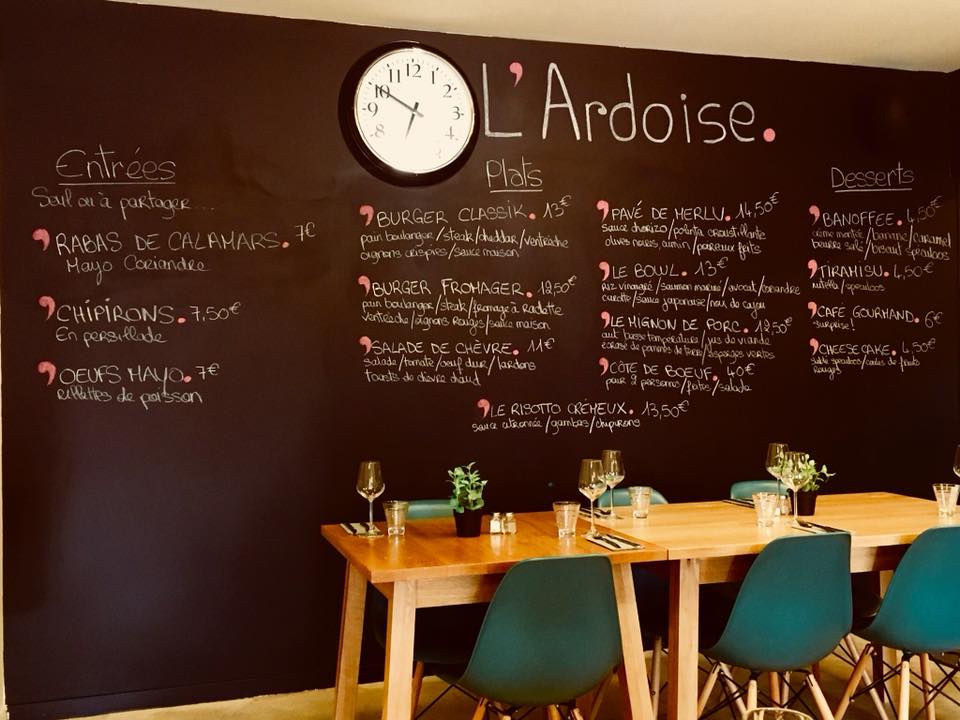 L'Ardoise.
12
11
10
9
8
2
3
4
Entrées
Seul ou à partager...
RABAS DE CALAMARS. 7€
Mayo Coriandre
CHIPIRONS. 7,50€
En persillade
OEUFS MAYO. 7€
rillettes de poisson
Plats
BURGER CLASSIK. 13€
pain boulanger/steak/cheddar/ventrèche
oignons crispies/sauce maison
BURGER FROMAGER. 12,50€
pain boulanger/steak/fromage à Raclette
ventrèche/oignons Rouges/sauce maison
SALADE DE CHÈVRE. 11€
salade/tomate/oeuf dur/lardons
toasts de chèvre chaud
PAVÉ DE MERLU. 14,50€
sauce chorizo/polenta croustillante
olives noires, cumin/poireaux frits
LE BOWL. 13€
Riz vinaigré/saumon mariné/avocat/coriandre
carotte/sauce japonaise/noix de cajou
LE MIGNON DE PORC. 12,50€
cuit basse température/jus de viande
écrasé de pommes de terre/asperges vertes
CÔTE DE BOEUF. 40€
pour 2 personnes/frites/salade
LE RISOTTO CRÉMEUX. 13,50€
sauce citronnée/gambas/chipirons
Desserts
BANOFFEE. 4,50€
crème montée/banane/caramel
beurre salé/biscuit speculoos
TIRAMISU. 4,50€
nutella/speculoos
CAFE GOURMAND. 6€
surprise!
CHEESECAKE. 4,50€
sablé speculoos/coulis de fruits
Rouges